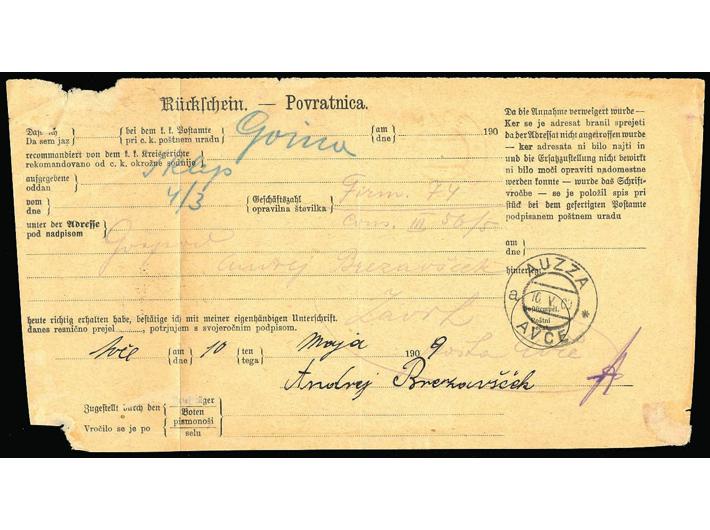 Rückschein. — Povratnica.
Daß ich bei dem k. k. Postamte Gorica am 190
Da sem jaz pri c. k. poštnem uradu dne
recommandiert von dem k. k. Kreisgerichte
rekomandovano od c. k. okrožne sodnije
aufgegebene
oddan
4/3
vom Geschäftszahl Firm. 74
dne opravilna številka Cons. III 56/5
unter der Adresse
pod nadpisom
Gospod
Andrej Brezavšček
heute richtig erhalten habe, bestätige ich mit meiner eigenhändigen Unterschrift.
danes resnično prejel, potrjujem s svojeročnim podpisom.
Avče am 10 ten Maja 190 9
dne tega
Andrej Brezavšček
Zugestellt durch den Boten
Vročilo se je po pismonoši
selu
Da die Annahme verweigert wurde —
Ker se je adresat branil sprejeti
da der Adressat nicht angetroffen wurde
— ker adresata ni bilo najti in
und die Ersatzzustellung nicht bewirkt
ni bilo moči opraviti nadomestne
werden konnte — wurde das Schrift-
vročbe — se je položil spis pri
stück bei dem gefertigten Postamte
podpisanem poštnem uradu
am
dne
hinterlegt
AUZZA
a
10 V 09
AVČE